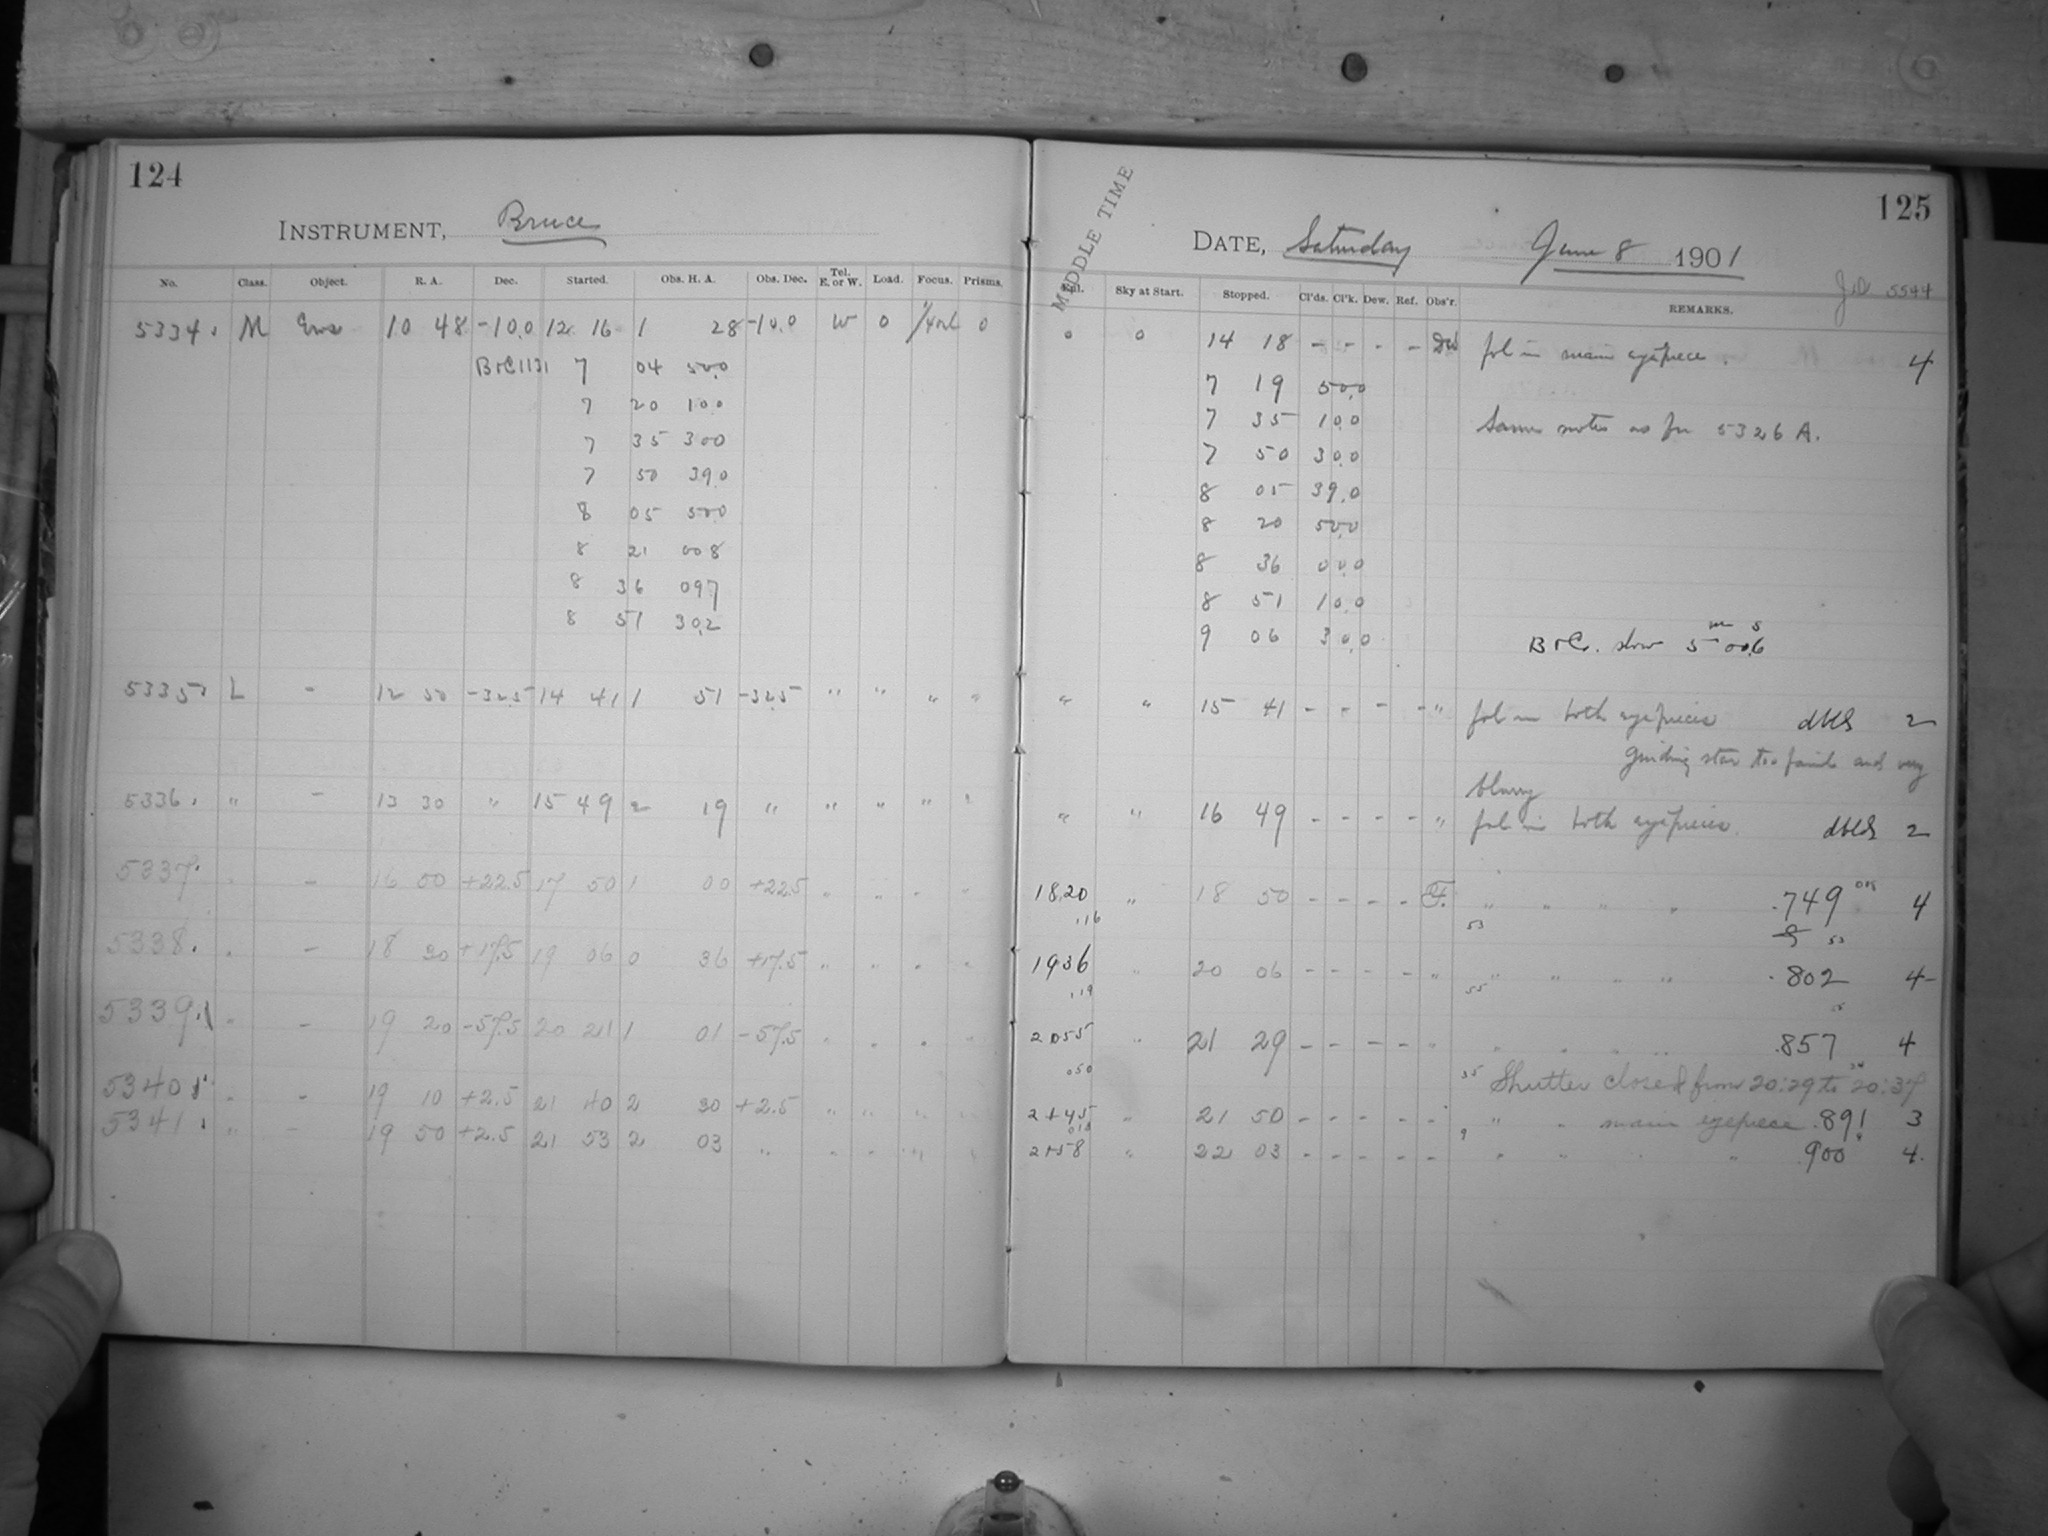 124
INSTRUMENT, Bruce
No. Class. Object. R. A. Dec. Started. Obs. H. A. Obs. Dec. Tel. E. or W. Load. Focus. Prisms.
5334. M Eros 10 48 -10.0 12 16 1 28 -10.0 W 0 0
B&C 1131 7 04 50.0
7 20 10.0
7 35 30.0
7 50 39.0
8 05 50.0
8 21 00.8
8 36 09.7
8 51 30.2
5335. L - 12 50 -32.5 14 41 1 51 -32.5 " " " "
5336. " - 13 30 " 15 49 2 19 " " " " "
5337. " - 16 50 +22.5 17 50 1 00 +22.5 " " " "
5338. " - 18 30 +17.5 19 06 0 36 +17.5 " " " "
5339. " - 19 20 -57.5 20 21 1 01 -57.5 " " " "
5340 " - 19 10 +2.5 21 40 2 30 +2.5 " " " "
5341. " - 19 50 +2.5 21 53 2 03 " " " " "
125
MIDDLE TIME
DATE, Saturday June 8 1901
J.D. 5544
Sky at Start. Stopped. Cl'ds. Cl'k. Dew. Ref. Obs'r. REMARKS.
0 0 14 18 - - - - DW fol in main eyepiece. 4
7 19 50.0
7 35 10.0 Same notes as for 5326 A.
7 50 30.0
8 05 39.0
8 20 50.0
8 36 00.0
8 51 10.0
9 06 30.0 B&C. slow 5m 00.6s
" " 15 41 - - - - " fol in both eyepieces dbld 2
Guiding star too faint and very
blurry
" " 16 49 - - - - " fol in both eyepieces. dbld 2
18.20 " 18 50 - - - - F. " " " " .749 4
.116 53
1936 " 20 06 - - - - " " " " " .802 4
.119 55
2055 " 21 29 - - - - " " " " " .857 4
.050 35 Shutter closed from 20:29 to 20:37
2145 " 21 50 - - - - - " " main eyepiece .891 3
013 9
2158 " 22 03 - - - - - " " " " .900 4.